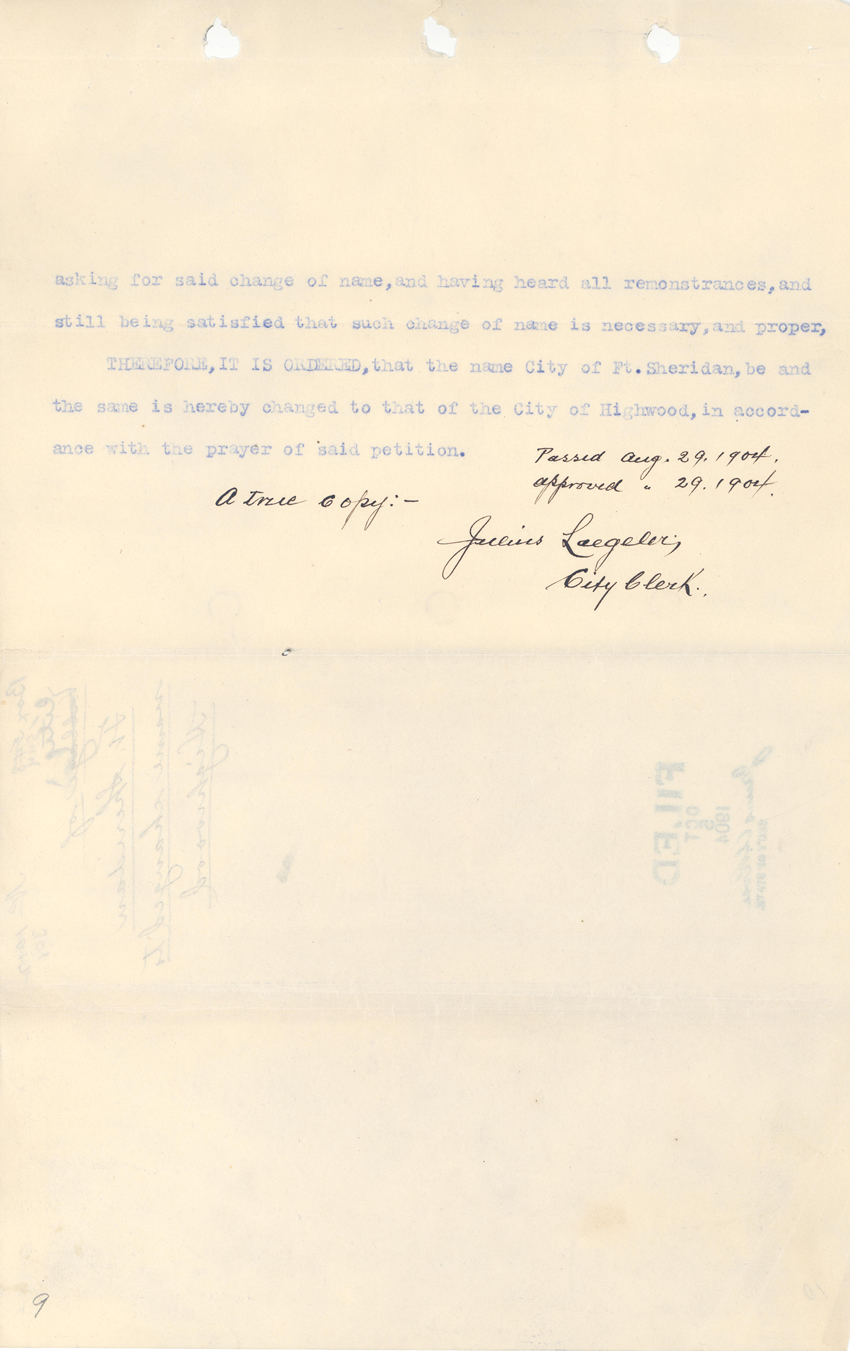 asking for said change of name,and having heard all remonstrances,and
still being satisfied that such change of name is necessary,and proper,
THEREFORE,IT IS ORDERED,that the name City of Ft.Sheridan,be and
the same is hereby changed to that of the City of Highwood,in accord-
ance with the prayer of said petition.
Passed Aug. 29. 1904.
approved " 29. 1904.
A true copy:-
Julius Laegeler,
City Clerk.
Highwood
name changed to
Ft Sheridan
FILED
OCT
5
1904
SECY OF STATE
9
10